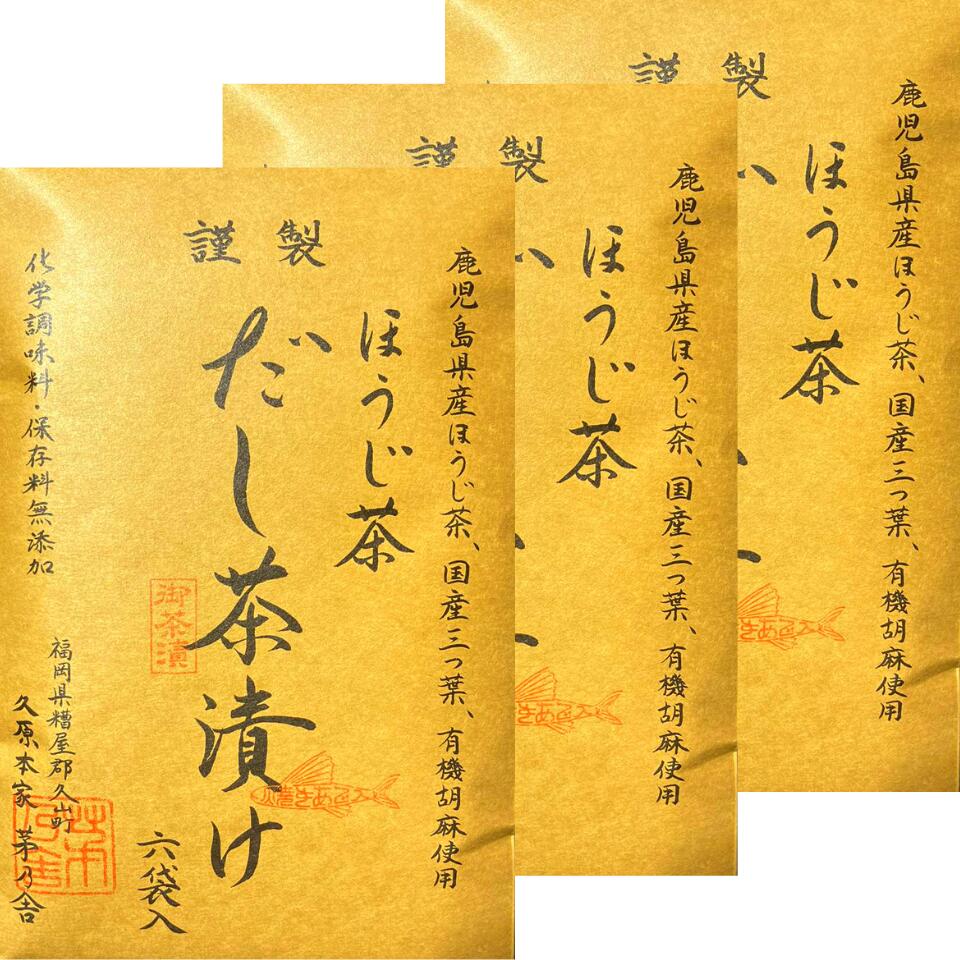 謹製
鹿児島県産ほうじ茶、国産三つ葉、有機胡麻使用
ほうじ茶
だし茶漬け
御茶漬
焼きあご入
六袋入
化学調味料・保存料無添加
福岡県糟屋郡久山町
久原本家 茅乃舎
茅乃舎
謹製
鹿児島県産ほうじ茶、国産三つ葉、有機胡麻使用
ほうじ茶
きあご入
謹製
鹿児島県産ほうじ茶、国産三つ葉、有機胡麻使用
ほうじ茶
きあご入